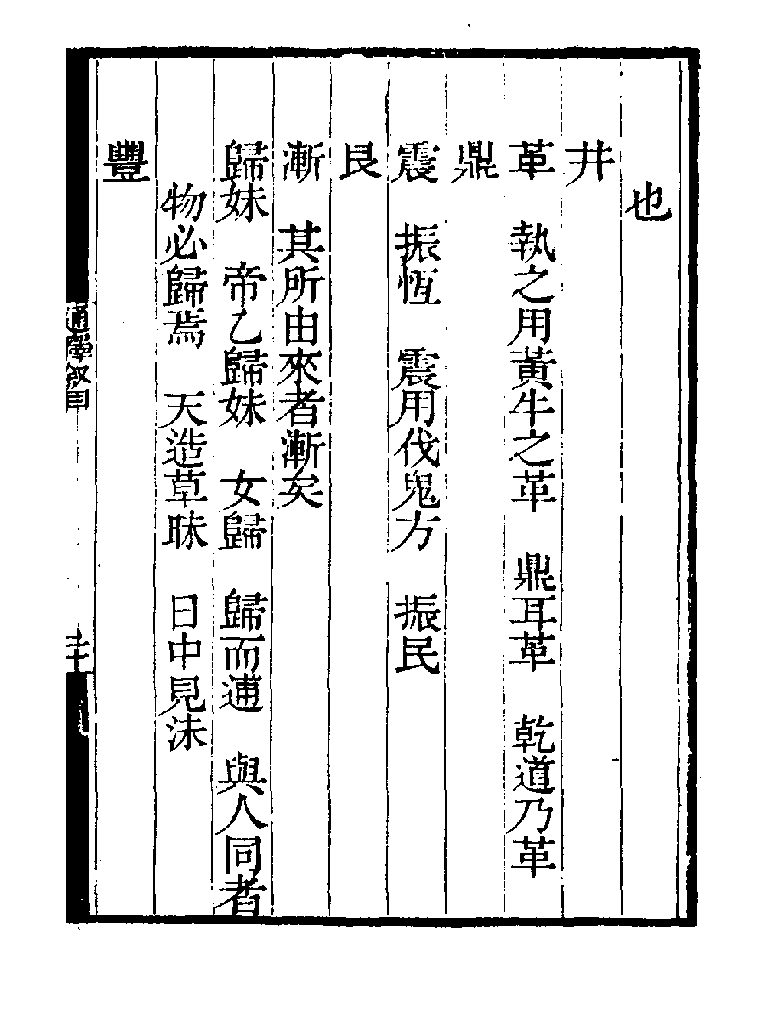 也
井
革　執之用黃牛之革　鼎耳革　乾道乃革
鼎
震　振恆　震用伐鬼方　振民
艮
漸　其所由來者漸矣
歸妹　帝乙歸妹　女歸　歸而逋　與人同者
物必歸焉　天造草昧　日中見沬
豐
通釋敘目